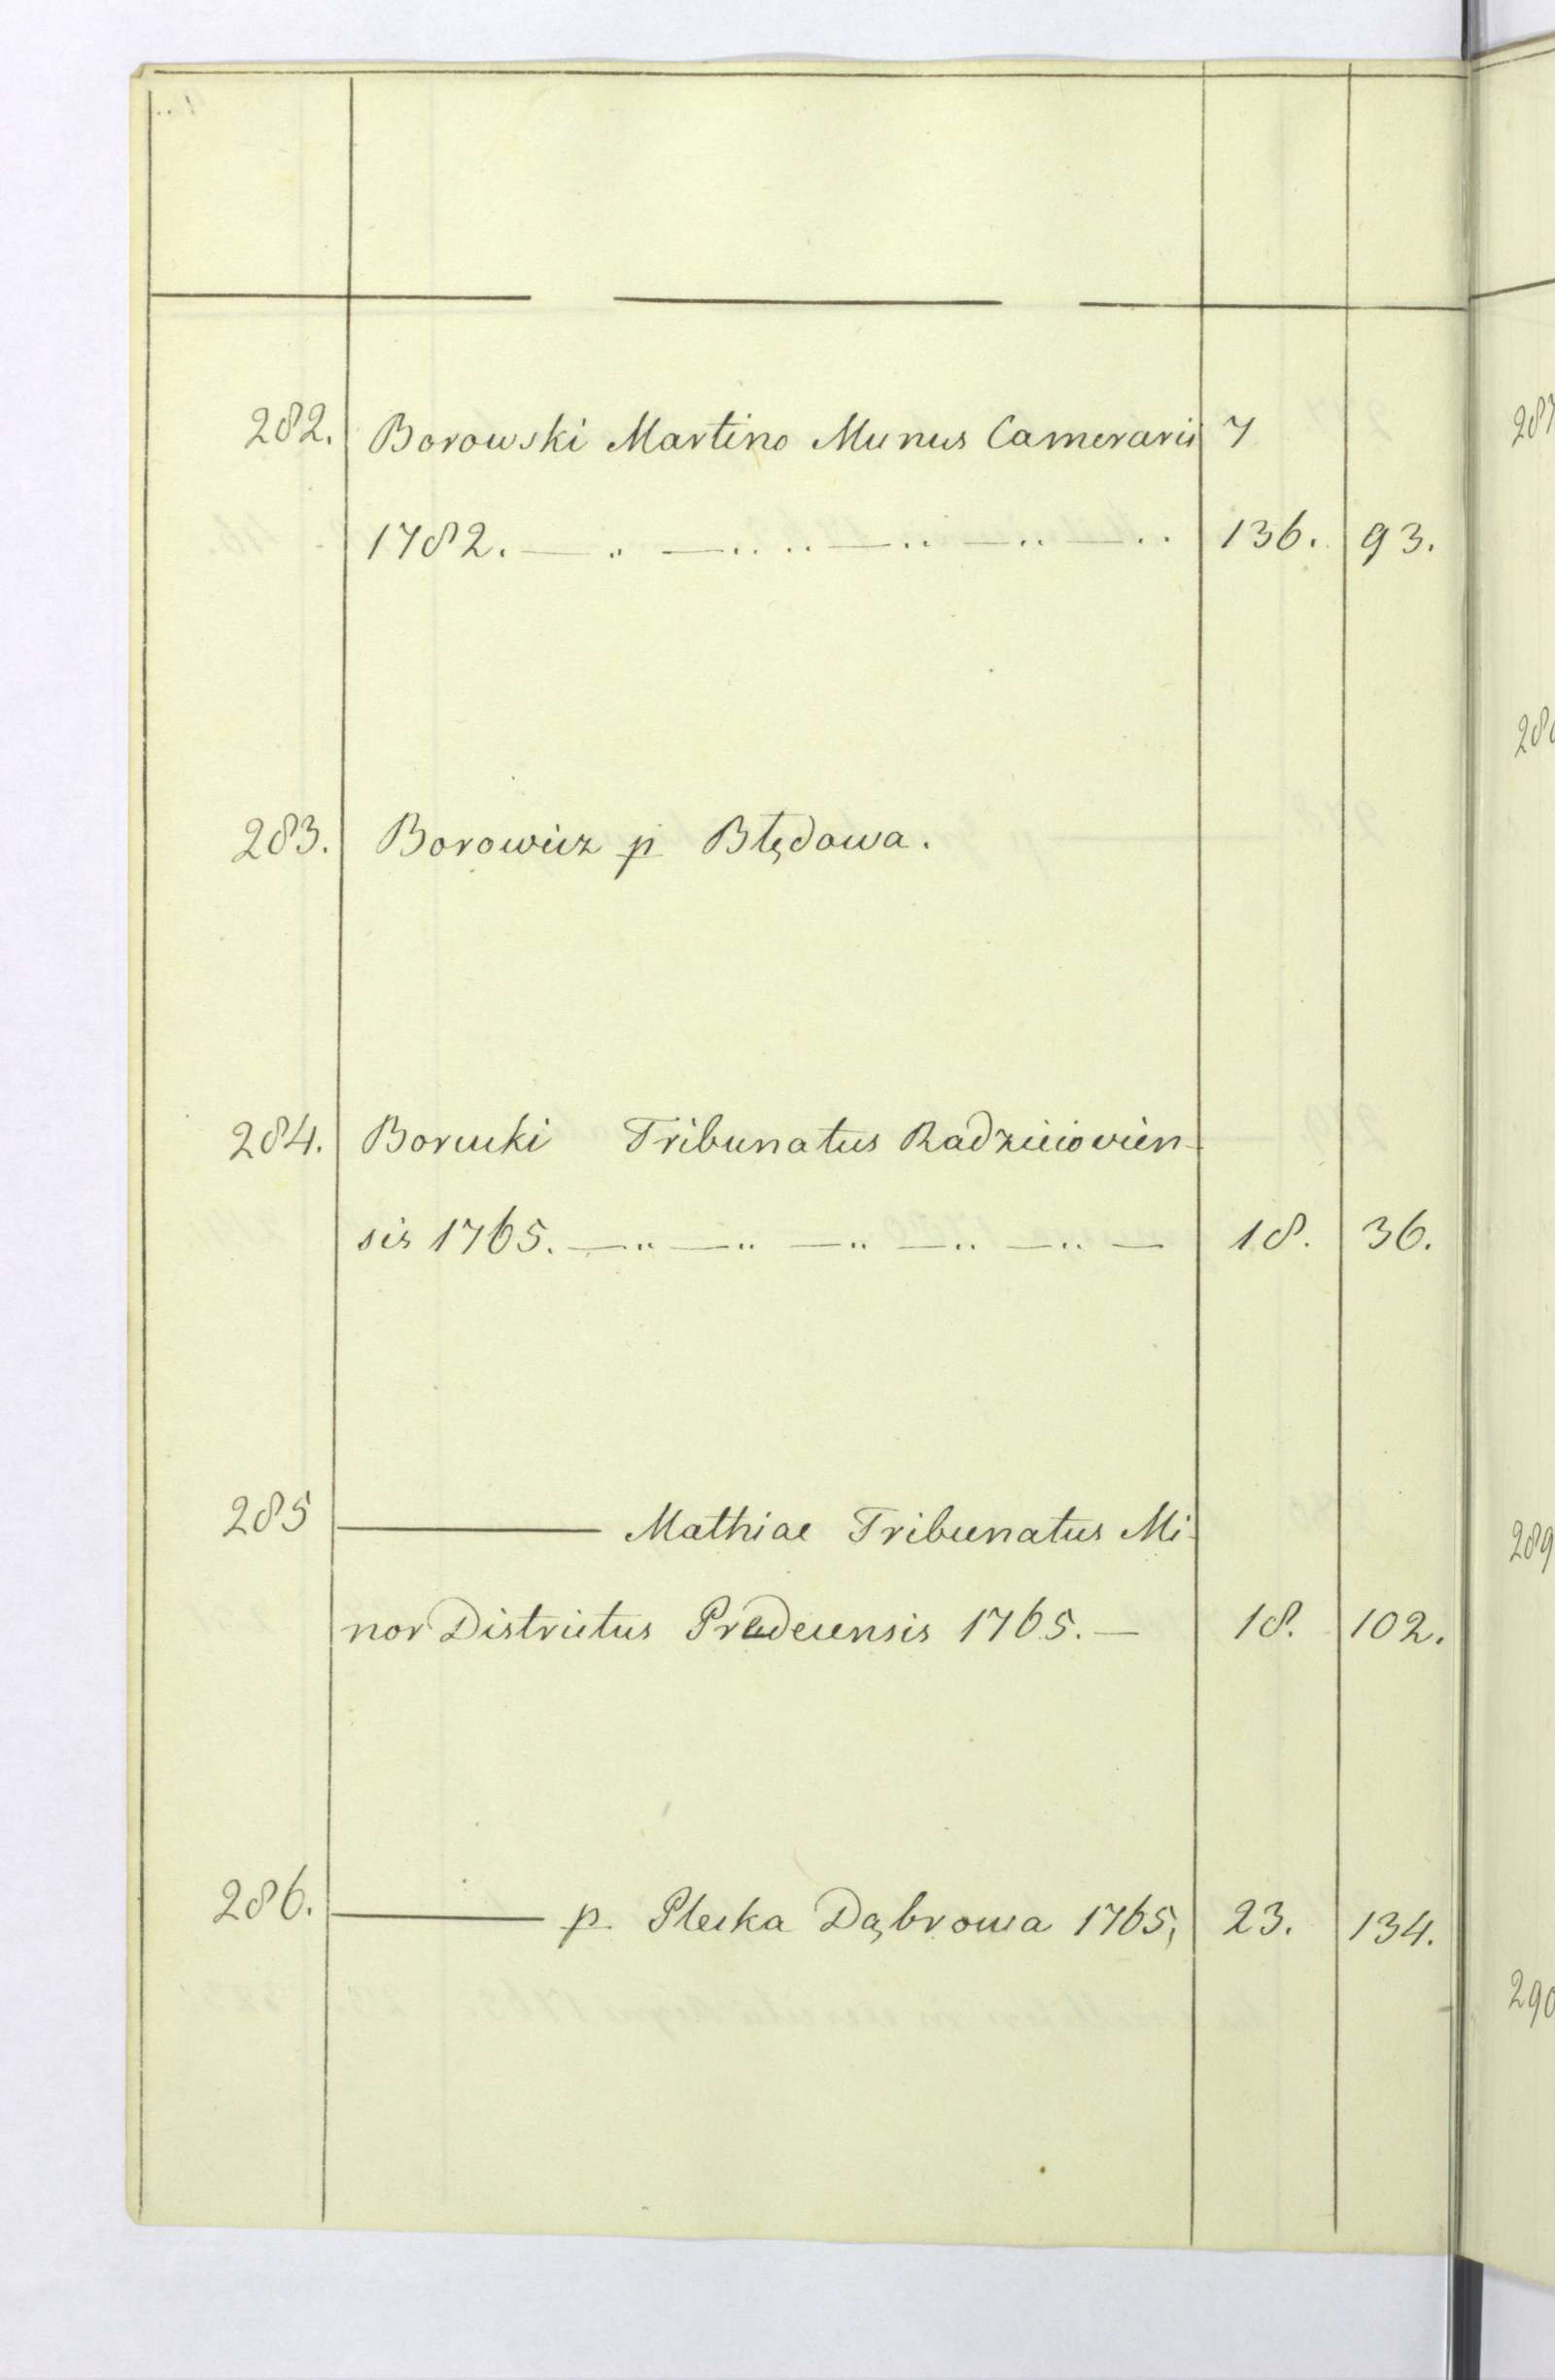 282. Borowski Martino Munus Cameraris 7
1782. — „ — „ „ — „ — „ — „ 136. 93.
283. Borowicz p Błędowa.
284. Borucki Tribunatus Radzieiovien-
sis 1765. — „ — „ — „ — „ — „ — 18. 36.
285 ——— Mathiae Tribunatus Mi-
nor Districtus Predecensis 1765. — 18. 102.
286. ——— p. Plecka Dąbrowa 1765; 23. 134.
287
289
290